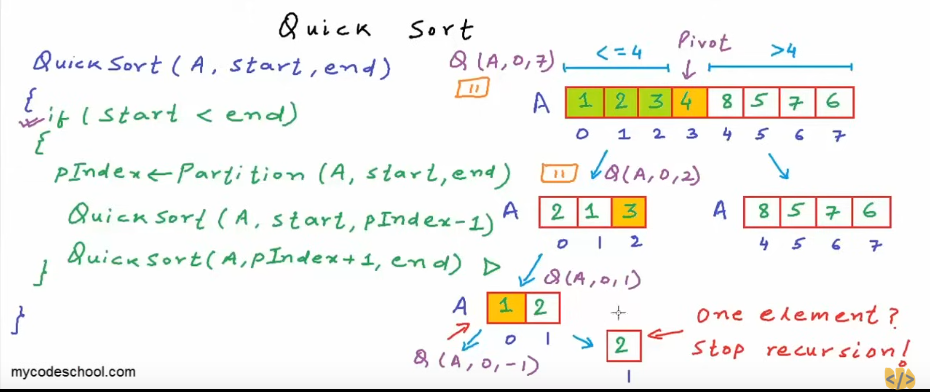 Quick Sort
QuickSort (A, start, end)
{
if (start < end)
{
pIndex ← Partition (A, start, end)
QuickSort (A, start, pIndex-1)
QuickSort (A, pIndex+1, end)
}
}
Q (A, 0, 7)
<=4
Pivot
>4
A 1 2 3 4 8 5 7 6
0 1 2 3 4 5 6 7
Q (A, 0, 2)
A 2 1 3
0 1 2
A 8 5 7 6
4 5 6 7
Q (A, 0, 1)
A 1 2
0 1
Q (A, 0, -1)
2
1
One element?
Stop recursion!
mycodeschool.com